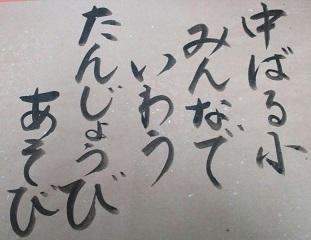 中ばる小
みんなで
いわう
たんじょうび
あそび